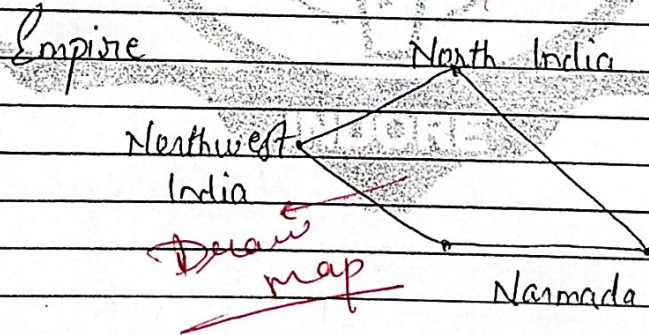 Empire
North India
INDORE
Northwest
India
Draw
map
Narmada